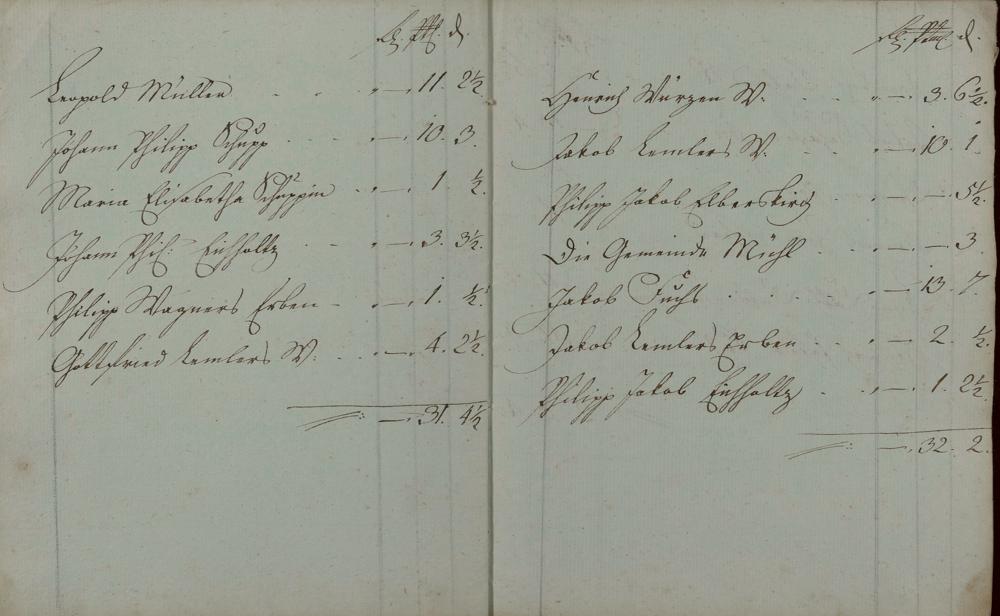 Leopold Müller . . . „ — . 11. 2½.
Johann Philipp Schupp . . . „ — . 10. 3.
Maria Elisabetha Schuppin . . „ — . 1. ½.
Johann Phil: Eichholtz . . „ — . 3. 3½.
Philipp Wagners Erben - . „ — . 1. ½.
Gottfried Lemlers W. . . . „ — . 4. 2½.
— . 31. 4½
Henrich Würzen W. . . „ — . 3. 6½.
Jakob Lemlers W. . . „ — . 10. 1.
Philipp Jakob Elberskirch . . — — 5½.
Die Gemeinde Mühl . . — — 3.
Jakob Fuchs . . . . „ — . 13. 7.
Jakob Lemlers Erben . . „ — . 2. ½.
Philipp Jakob Eichholtz . . „ — . 1. 2½.
— . 32. 2.